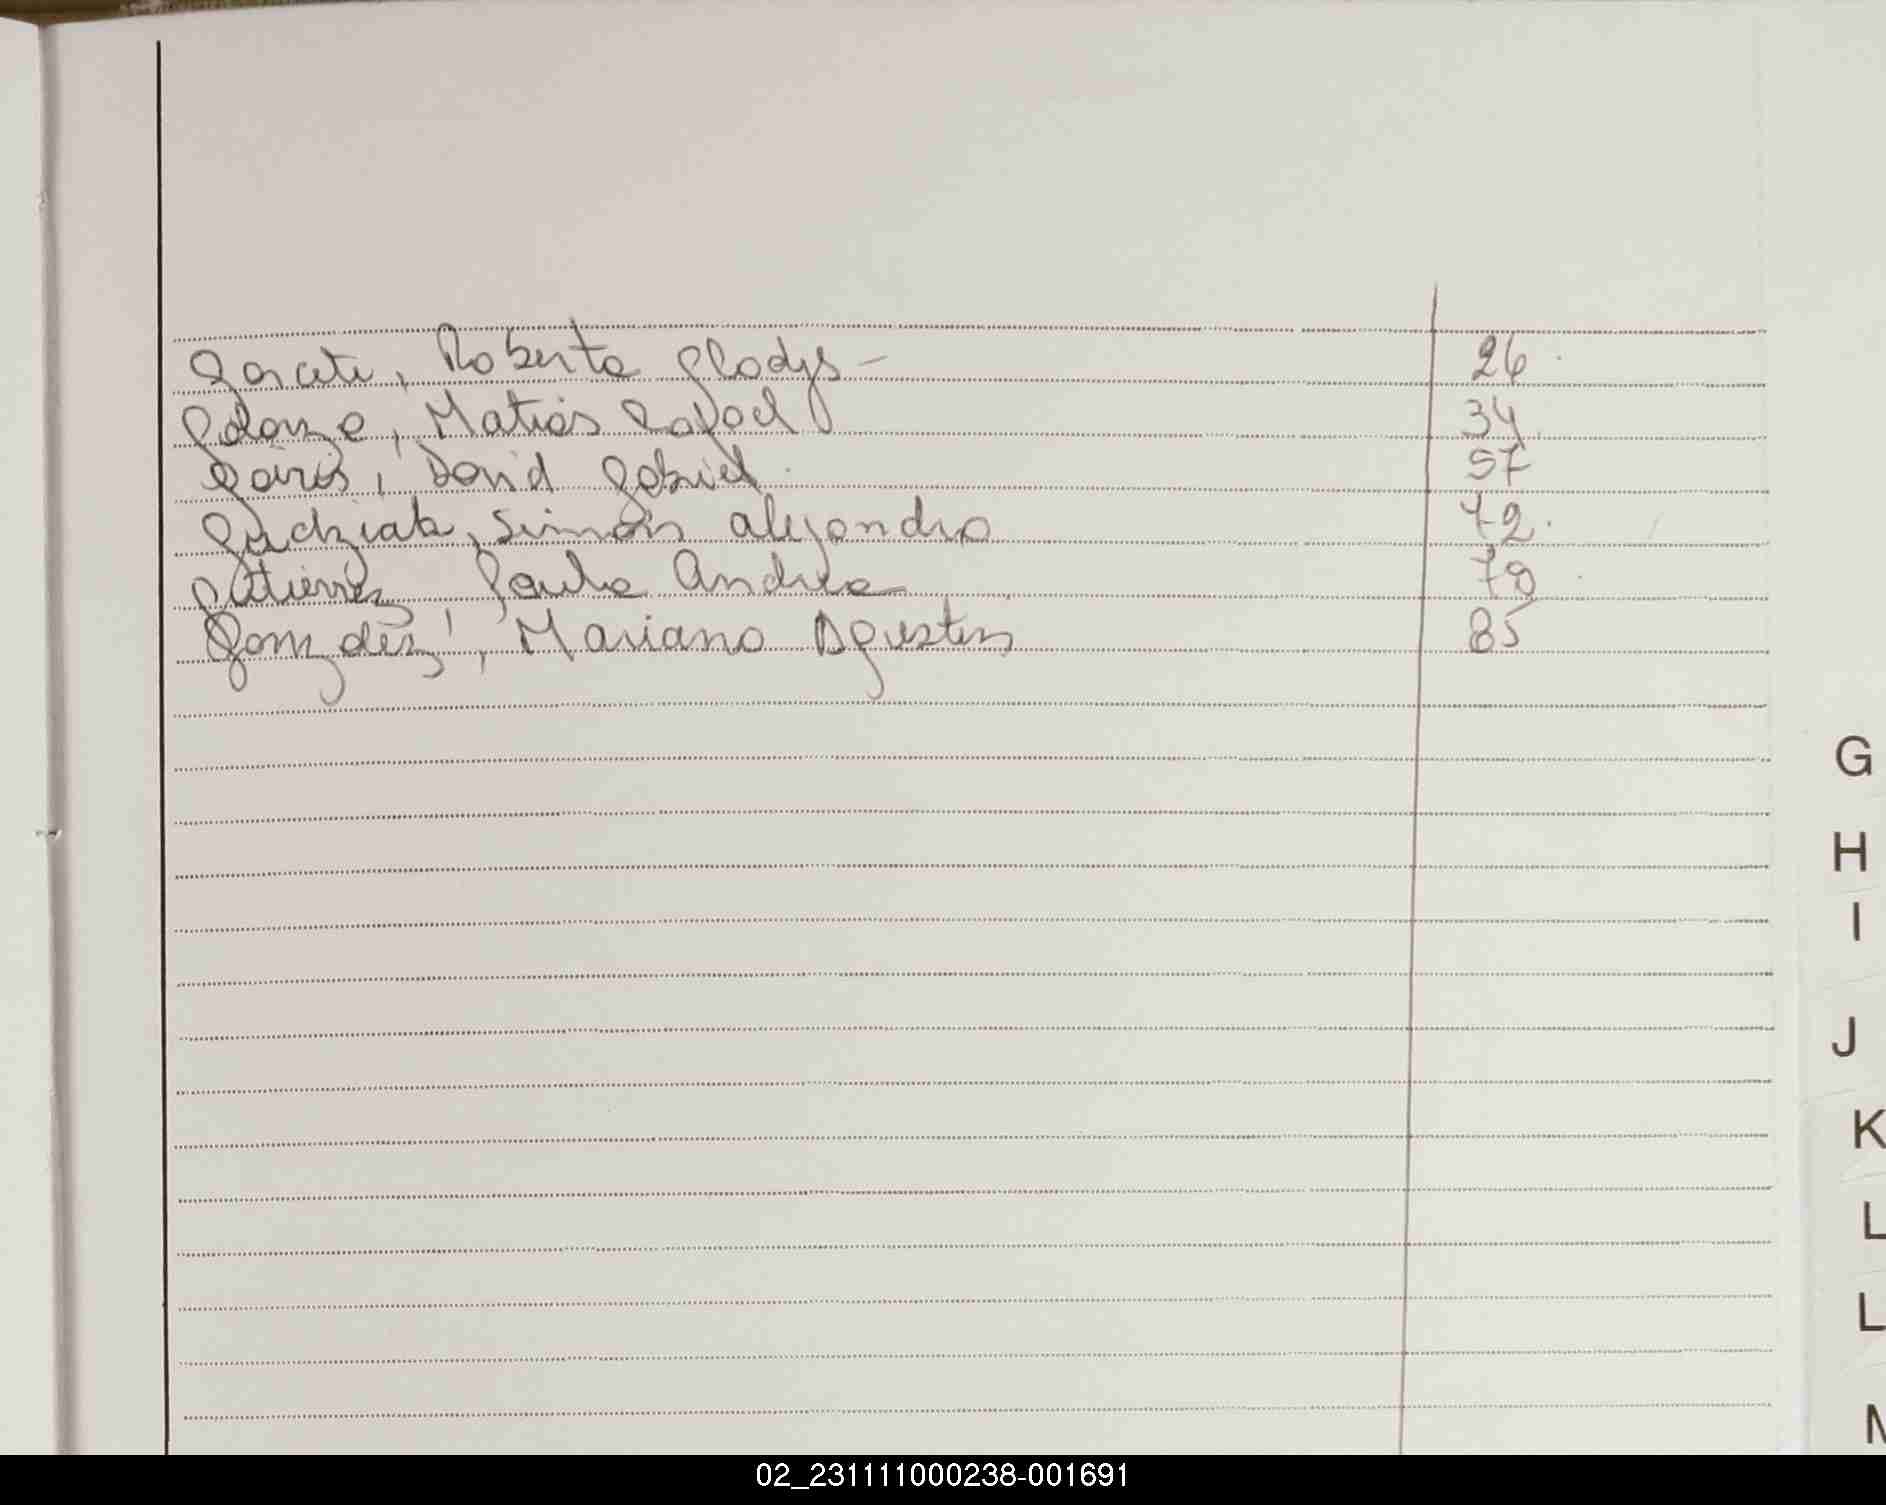 Garcete, Roberto Gladys - 26
Galarza, Matías Rafael 34
David Gabriel. 57
Gudziak, Simón Alejandro 72.
Gutierrez, Paula Andrea
Gonzalez, Mariano Agustin 85
G
H
I
J
K
L
L
M
02_231111000238-001691